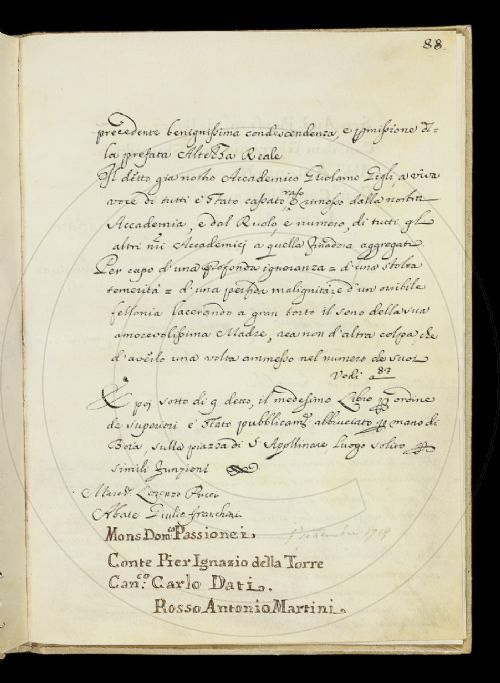 88
precedente benignissima condescendenza, e pmissione di=
la prefata Altezza Reale
Il detto gia nostro Accademico Girolamo Gigli, a viva
voce di tutti è stato cassato, raso e rimosso dalla nostra
Accademia, e dal Ruolo, e numero, di tutti gl
altri nri Accademici a quella aggregati.
Per capo d'una profonda ignoranza = d'una stolta
temerità = d'una perfida malignità, e d'un orribile
fellonia lacerando a gran torto il seno della sua
amorevolissima Madre, rea non d'altra colpa, che
d'averlo una volta ammesso nel numero de suoi
Vedi 87
E poi sotto di q detto, il medesimo Libro p ordine
de superiori è stato pubblicamte abbruciato p mano di
Boia, sulla piazza di S. Apollinare Luogo solito p
simili funzioni
Lorenzo Pucci
Abate Giulio Franchini
Mons. Domco Passionei.
Conte Pier Ignazio della Torre
Canco: Carlo Dati.
Rosso Antonio Martini.